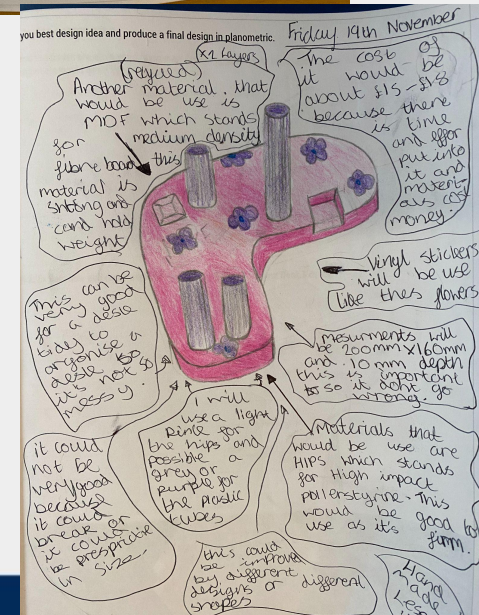 you best design idea and produce a final design in planometric.
Friday 19th November
x2 Layers
(recycled)
Another material, that
would be use is
MDF which stands
for medium density
fibre board this
material is
strong and
cand hold
weight
The cost of
it would be
about £15-£18
because there
is time
and effor
put into
it and
materi-
als cost
money.
Vinyl stickers
will be use
like thes flowers
This can be
very good
for a desk
tidy to
organise a
desk so
it's not so
messy.
mesurments will
be 200mm x 160mm
and 10mm depth
this is important
so it dont go
wrong.
I will
use a light
pink for
the hips and
possible a
grey or
purple for
the plastic
tubes
Materials that
would be use are
HIPS which stands
for High impact
pollerstyrine. This
would be good to
use as it's
firm.
it could
not be
very good
because
it could
break or
it could
be
in size.
this could
be improved
by different
designs or different
shapes
Hand
made